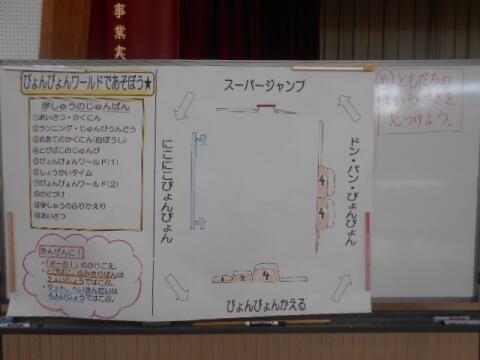 事業実
ぴょんぴょんワールドであそぼう★
学しゅうのじゅんばん
①あいさつ・かくにん
②ランニング・じゅんびうんどう
③めあてのかくにん(白ぼうし)
④とびばこのじゅんび
⑤ぴょんぴょんワールド(1)
⑥しょうかいタイム
⑦ぴょんぴょんワールド(2)
⑧かたづけ
⑨学しゅうのふりかえり
⑩あいさつ
あんぜんに!
・「せーの!」のかけごえ。
・とびばこ、ふみきりばんは
2人いじょうではこぶ。
・マット、へいきんだいは
4人いじょうではこぶ。
スーパージャンプ
にこにこぴょんぴょん
ドン・パン・ぴょんぴょん
4
4
1 2 4
ぴょんぴょんかえる
め ともだちの
見つけよう。